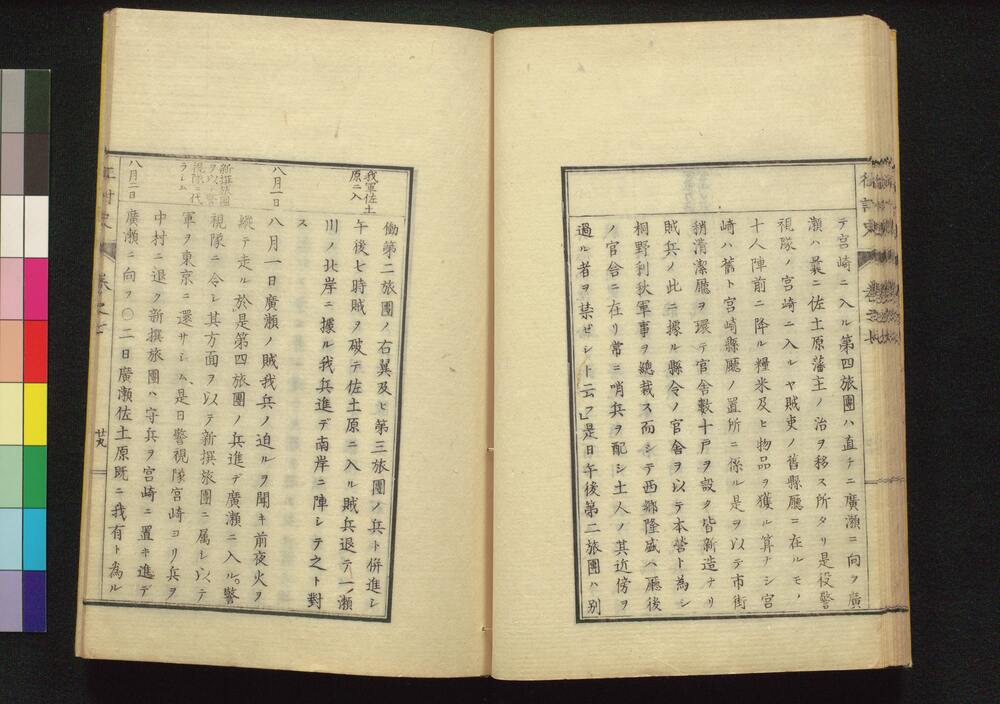 テ宮崎ニ入ル第四旅團ハ直チニ廣瀬ニ向フ廣
瀬ハ曩ニ佐土原藩主ノ治ヲ移ス所タリ是役警
視隊ノ宮崎ニ入ルヤ賊吏ノ舊縣廳ニ在ルモノ
十人陣前ニ降ル糧米及ヒ物品ヲ獲ル算ナシ宮
崎ハ舊ト宮崎縣廳ノ置所ニ係ル是ヲ以テ市街
稍清潔廳ヲ環テ官舎數十戸ヲ設ク皆新造ナリ
賊兵ノ此ニ據ル縣令ノ官舎ヲ以テ本營ト為シ
桐野利秋軍事ヲ總裁ス而シテ西郷隆盛ハ廳後
ノ官舎ニ在リ常ニ哨兵ヲ配シ土人ノ其近傍ヲ
過ル者ヲ禁ゼシト云フ是日午後第二旅團ハ別
我軍佐土
原ニ入
働第二旅團ノ右翼及ヒ第三旅團ノ兵ト併進シ
午後七時賊ヲ破テ佐土原ニ入ル賊兵退テ一ノ瀬
川ノ北岸ニ據ル我兵進デ南岸ニ陣シテ之ト對
ス
八月一日
八月一日廣瀬ノ賊我兵ノ迫ルヲ聞キ前夜火ヲ
縱テ走ル於是第四旅團ノ兵進デ廣瀬ニ入ル。警
新撰旅團
ヲ以警
視隊ニ代
ラシム
視隊ニ令シ其方面ヲ以テ新撰旅團ニ属シ以テ
軍ヲ東京ニ還サシム、是日警視隊宮崎ヨリ兵ヲ
中村ニ退ク新撰旅團ハ守兵ヲ宮崎ニ置キ進デ
八月二日
廣瀬ニ向フ〇二日廣瀬佐土原既ニ我有ト為ル
征討史
卷之七
廿九